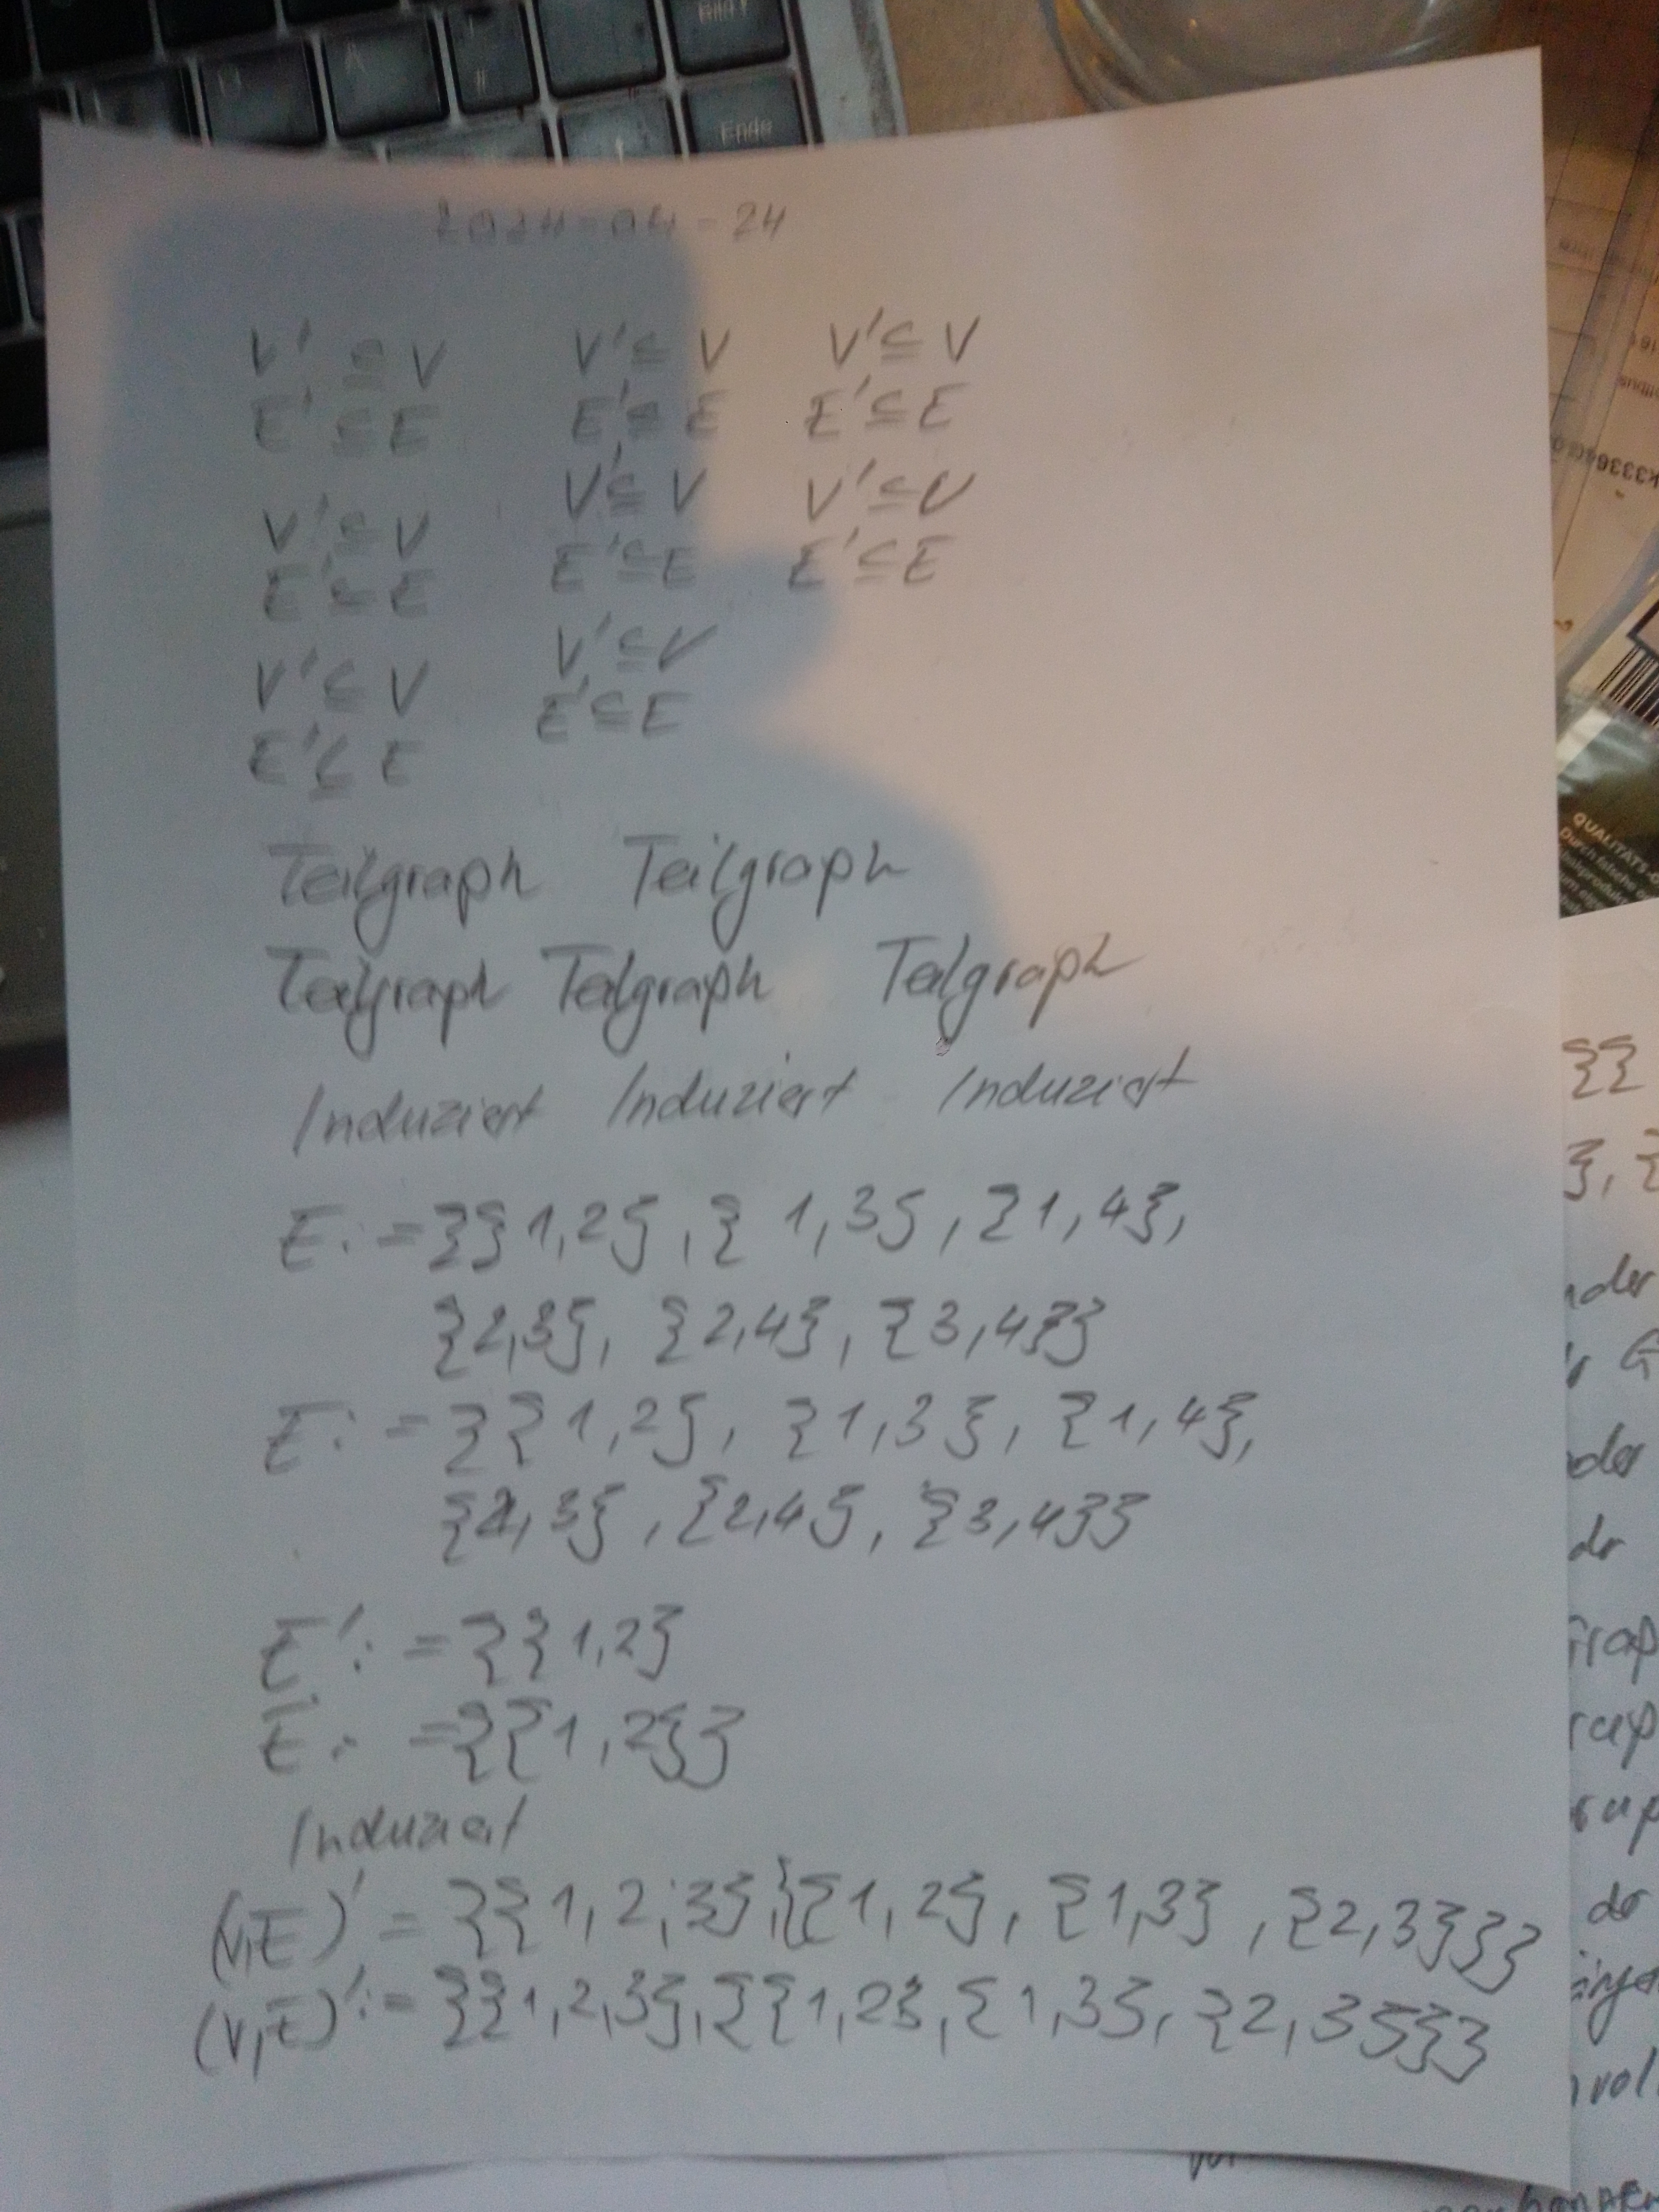 Bild↑
A
#
Ende
2024-04-24
V' ⊆ V V' ⊆ V V' ⊆ V
E' ⊆ E E' ⊆ E E' ⊆ E
V' ⊆ V V' ⊆ V
V' ⊆ V
E' ⊆ E E' ⊆ E
E' ⊆ E
V' ⊆ V
V' ⊆ V
E' ⊆ E
E' ⊆ E
Teilgraph Teilgraph
Teilgraph Teilgraph Teilgraph
Induziert Induziert Induziert
E := {{1,2}, {1,3}, {1,4},
{2,3}, {2,4}, {3,4}}
E := {{1,2}, {1,3}, {1,4},
{2,3}, {2,4}, {3,4}}
E' := {{1,2}
E := {{1,2}}
Induziert
(V,E)' = {{1,2,3},{{1,2}, {1,3}, {2,3}}}
(V,E)' := {{1,2,3},{{1,2}, {1,3}, {2,3}}}
QUALITÄTS